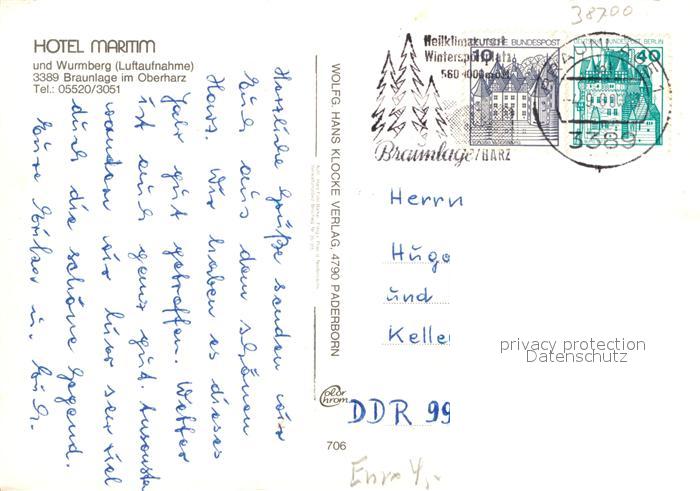 HOTEL MARITIM
und Wurmberg (Luftaufnahme)
3389 Braunlage im Oberharz
Tel.: 05520/3051
Herzliche Grüße senden wir
Euch aus dem schönen
Harz. Wir haben es dieses
Jahr gut getroffen. Wetter
ist auch ganz gut. Ansonsten
wandern wir hier sehr viel
durch die schöne Gegend.
Eure u.
WOLFG. HANS KLOCKE VERLAG, 4790 PADERBORN
color
chrom
706
Heilklimakurort
Wintersportplatz
560-1000m
Braunlage/HARZ
10
DEUTSCHE BUNDESPOST
DEUTSCHE BUNDESPOST BERLIN
40
3389
38700
Herrn
Hugo
und
Kelle
DDR 99
privacy protection
Datenschutz
Euro 4,-